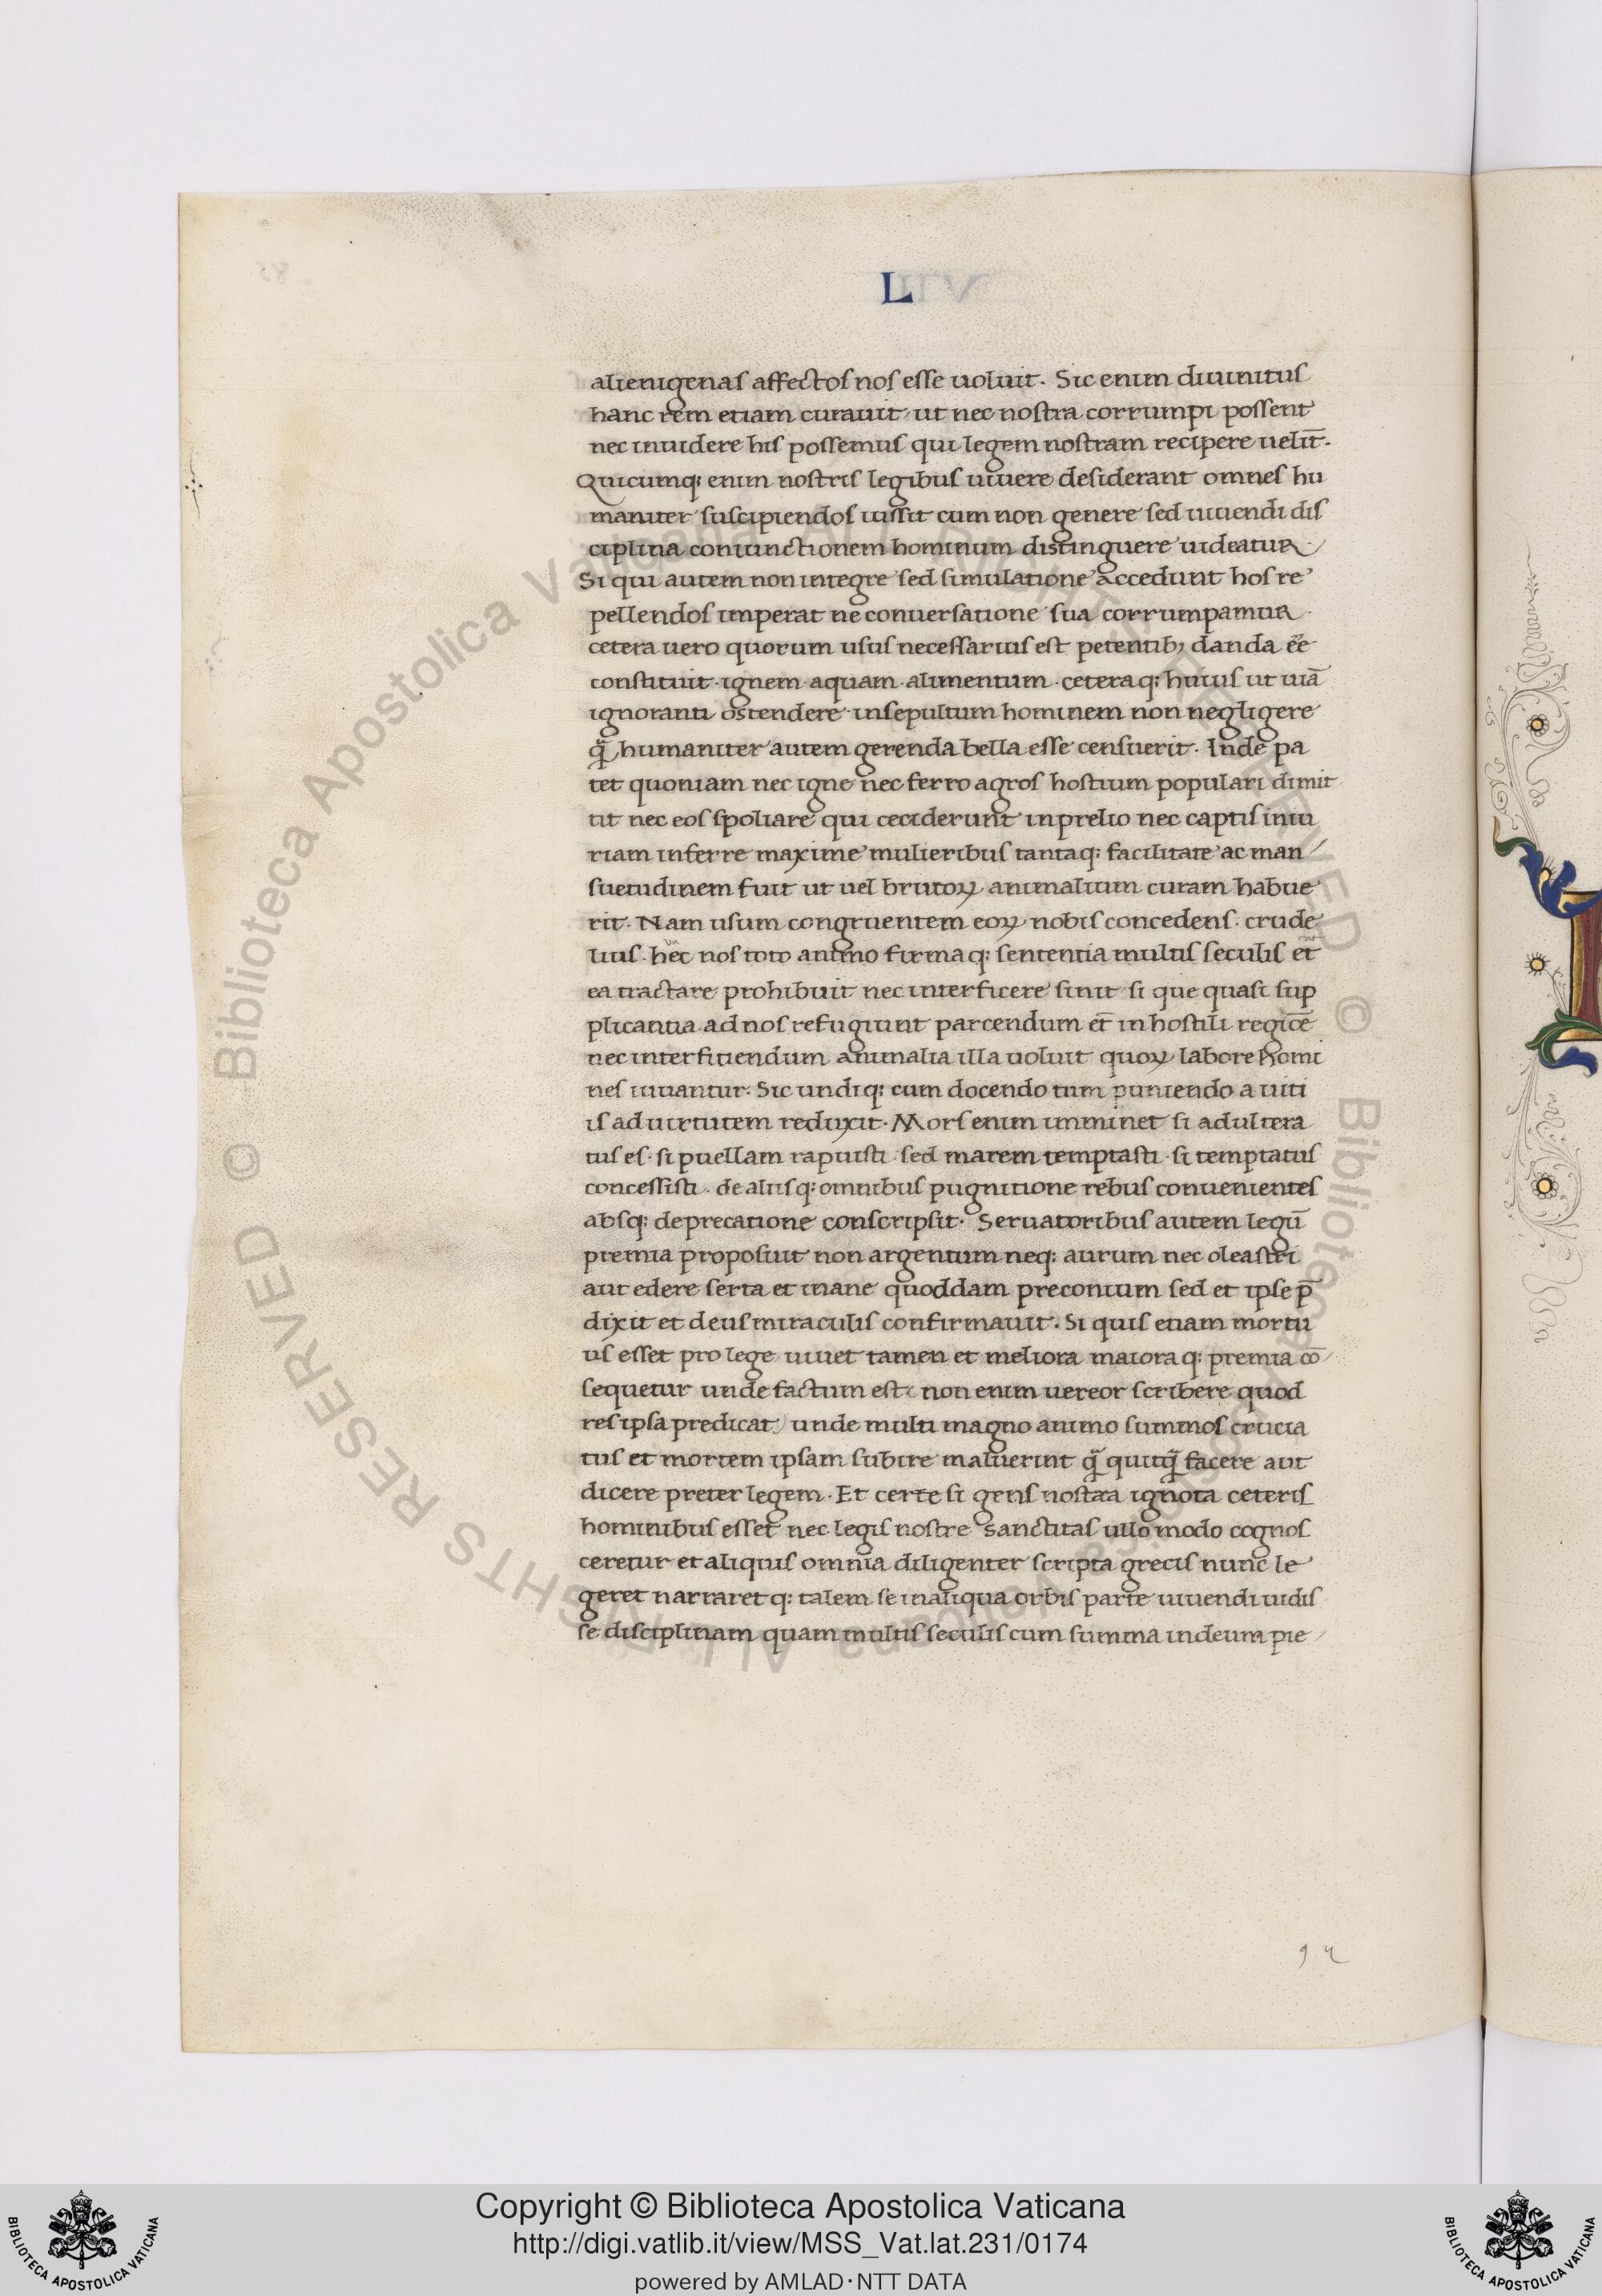 L
alienigenas affectos nos esse uoluit. Sic enim diuinitus
hanc rem etiam curauit ut nec nostra corrumpi possent
nec inuidere his possemus qui legem nostram recipere uelit̄.
Quicumq: enim nostris legibus uiuere desiderant omnes hu
maniter suscipiendos iussit cum non genere sed uiuendi dis
ciplina coniunctionem hominum distinguere uideatur
Si qui autem non integre sed simulatione accedunt hos re
pellendos imperat ne conuersatione sua corrumpamur
cetera uero quorum usus necessarius est petentib; danda ēē
constituit. ignem. aquam. alimentum. ceteraq: huius ut uiā
ignoranti ostendere. insepultum hominem non negligere
q̄ humaniter autem gerenda bella esse censuerit. Inde pa
tet quoniam nec igne nec ferro agros hostium populari dimit
tit nec eos spoliare qui ceciderunt in prelio nec captis iniu
riam inferre maxime mulieribus tantaq: facilitate ac man
suetudinem fuit ut uel brutoꝝ animalium curam habue
rit. Nam usum congruentem eoꝝ nobis concedens. crude
lius. hec nos toto animo firmaq: sententia multis seculis et
ea tractare prohibuit nec interficere sinit si que quasi sup
plicantia ad nos refugiunt parcendum et̄ in hostili regiōē
nec interfitiendum animalia illa uoluit quoꝝ labore homi
nes iuuantur. Sic undiq: cum docendo tum puniendo a uiti
is ad uirtutem reduxit. Mors enim imminet si adultera
tus es. si puellam rapuisti. sed marem temptasti. si temptatus
concessisti. de aliisq: omnibus pugnitione rebus conuenientes
absq: deprecatione conscripsit. Seruatoribus autem legū
premia proposuit non argentum neq: aurum nec oleastri
aut edere serta et inane quoddam preconium sed et ipse p̄
dixit et deus miraculis confirmauit. Si quis etiam mortu
us esset pro lege uiuet tamen et meliora maioraq: premia cō
sequetur unde factum est. non enim uereor scribere quod
res ipsa predicat) unde multi magno animo summos crucia
tus et mortem ipsam subire maluerint q̄ quitq̄ facere aut
dicere preter legem. Et certe si gens nostra ignota ceteris
hominibus esset nec legis nostre sanctitas ullo modo cognos
ceretur et aliquis omnia diligenter scripta grecis nunc le
geret narraretq: talem se in aliqua orbis parte uiuendi uidis
se disciplinam quam multis seculis cum summa in deum pie
Copyright © Biblioteca Apostolica Vaticana
http://digi.vatlib.it/view/MSS_Vat.lat.231/0174
powered by AMLAD·NTT DATA